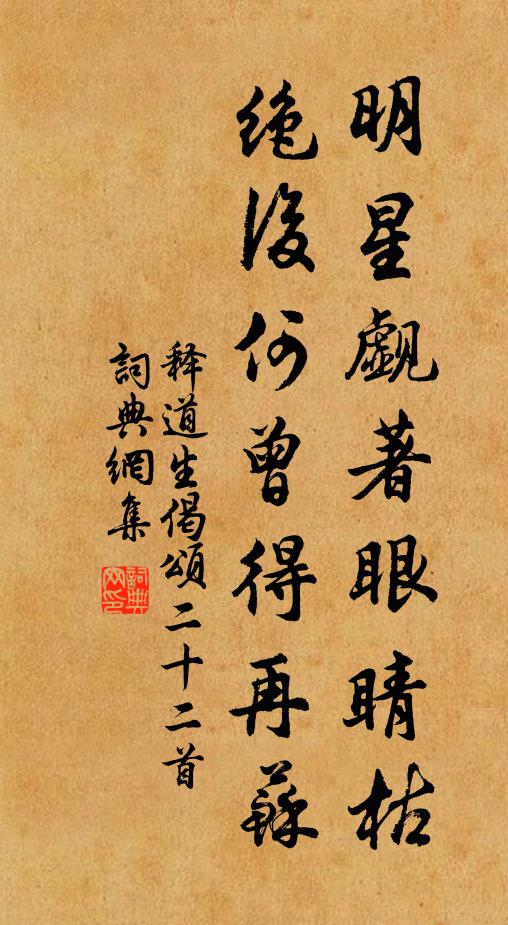 明星觑著眼睛枯
絶後何曾得再蘇
释道生偈頌二十二首
詞典網集
詞典網印